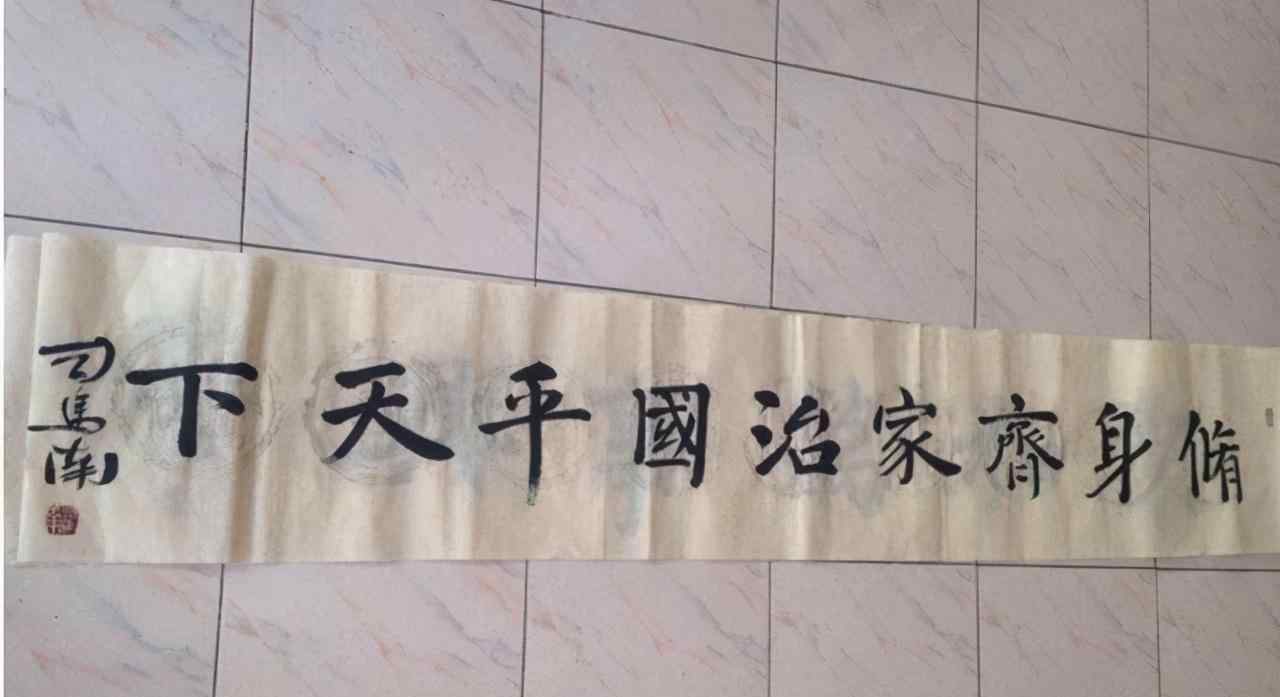 脩身齊家治國平天下
司馬南